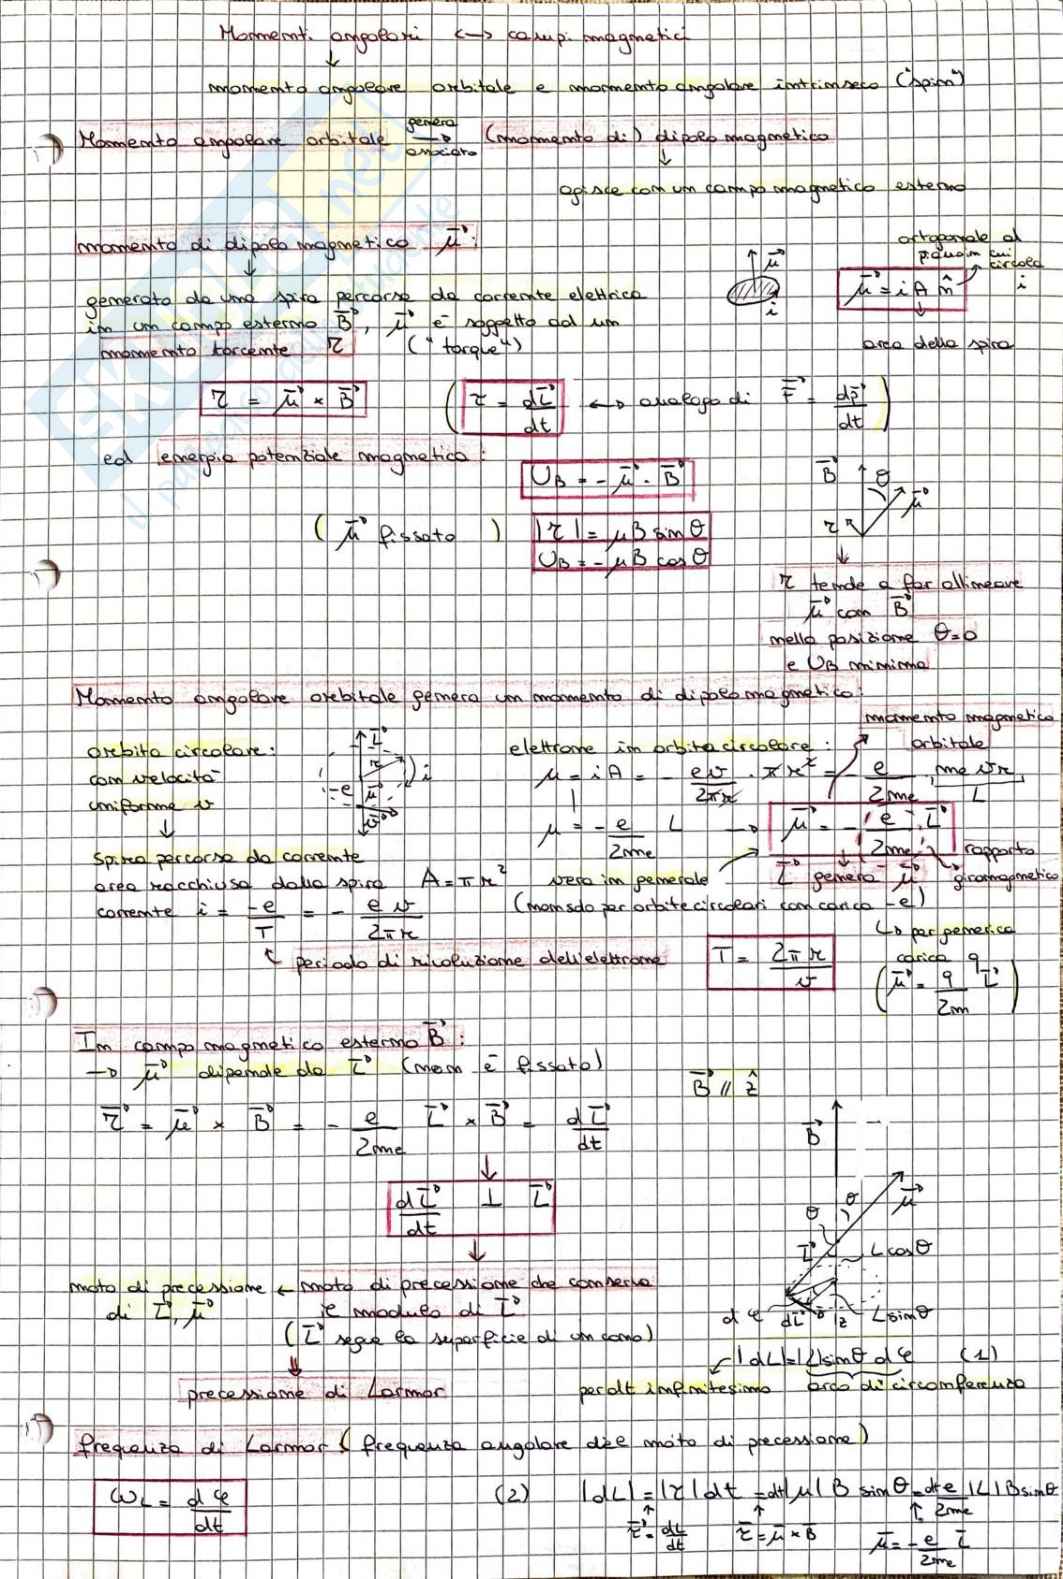 Momenti angolari <-> campi magnetici
↓
momento angolare orbitale e momento angolare intrinseco ("spin")
Momento angolare orbitale genera → associato (momento di) dipolo magnetico
↓
agisce con un campo magnetico esterno
momento di dipolo magnetico μ⃗:
↓
generato da una spira percorsa da corrente elettrica
in un campo esterno B⃗, μ⃗ è soggetto ad un
momento torcente τ ("torque")
μ⃗
i
μ⃗ = i A n̂
ortogonale al
piano in cui
circola
i
area della spira
τ = μ⃗ × B⃗ ( τ = dL⃗/dt <-> analogo di F⃗ = dp⃗/dt )
ed energia potenziale magnetica:
U_B = - μ⃗ · B⃗
( μ⃗ fissato ) |τ| = μB sinθ
U_B = - μB cosθ
B⃗ θ μ⃗ τ
↓
τ tende a far allineare
μ⃗ con B⃗
nella posizione θ=0
e U_B minima
Momento angolare orbitale genera un momento di dipolo magnetico:
orbita circolare:
con velocità
uniforme v
↓
spira percorsa da corrente
area racchiusa dalla spira A = πr²
corrente i = -e/T = - ev/2πr
↳ periodo di rivoluzione dell'elettrone
T = 2πr/v
L⃗ r i -e μ⃗ v⃗
elettrone in orbita circolare:
momento magnetico
orbitale
μ = iA = - ev/2πr · πr² = - e/2me · me v r
L
μ = - e/2me L → μ⃗ = - (e/2me) L⃗
rapporto
giromagnetico
vera in generale L⃗ genera μ⃗
(non solo per orbite circolari con carica -e)
↳ per generica
carica q
( μ⃗ = q/2m L⃗ )
In campo magnetico esterno B⃗:
→ μ⃗ dipende da L⃗ (non è fissato)
τ⃗ = μ⃗ × B⃗ = - e/2me L⃗ × B⃗ = dL⃗/dt
↓
dL⃗/dt ⊥ L⃗
↓
moto di precessione ← moto di precessione che conserva
di L⃗, μ⃗ il modulo di L⃗
(L⃗ segue la superficie di un cono)
↓
precessione di Larmor
B⃗ // ẑ
B⃗
θ θ μ⃗
L⃗ Lcosθ
dφ dL⃗ Lsinθ
|dL| = |L| sinθ dφ (1)
per dt infinitesimo arco di circonferenza
frequenza di Larmor (frequenza angolare del moto di precessione)
ω_L = dφ/dt
(2) |dL| = |τ| dt = dt |μ| B sinθ = dt e/2me |L| B sinθ
τ⃗ = dL/dt τ⃗ = μ⃗ × B⃗ μ⃗ = - e/2me L⃗